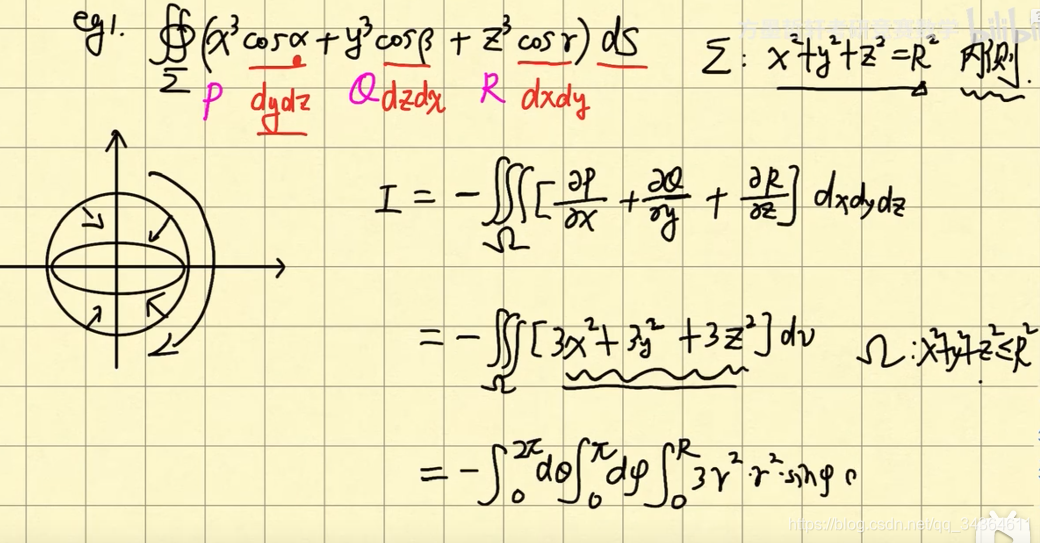 eg1. ∯_Σ (x³ cosα + y³ cosβ + z³ cosγ) ds Σ: x²+y²+z²=R² 内侧.
P dydz Q dzdx R dxdy
I = -∭_Ω [∂P/∂x + ∂Q/∂y + ∂R/∂z] dxdydz
= -∭_Ω [3x² + 3y² + 3z²] dv Ω: x²+y²+z² ≤ R²
= -∫₀^2π dθ ∫₀^π dφ ∫₀^R 3r²·r²·sinφ
bilibili